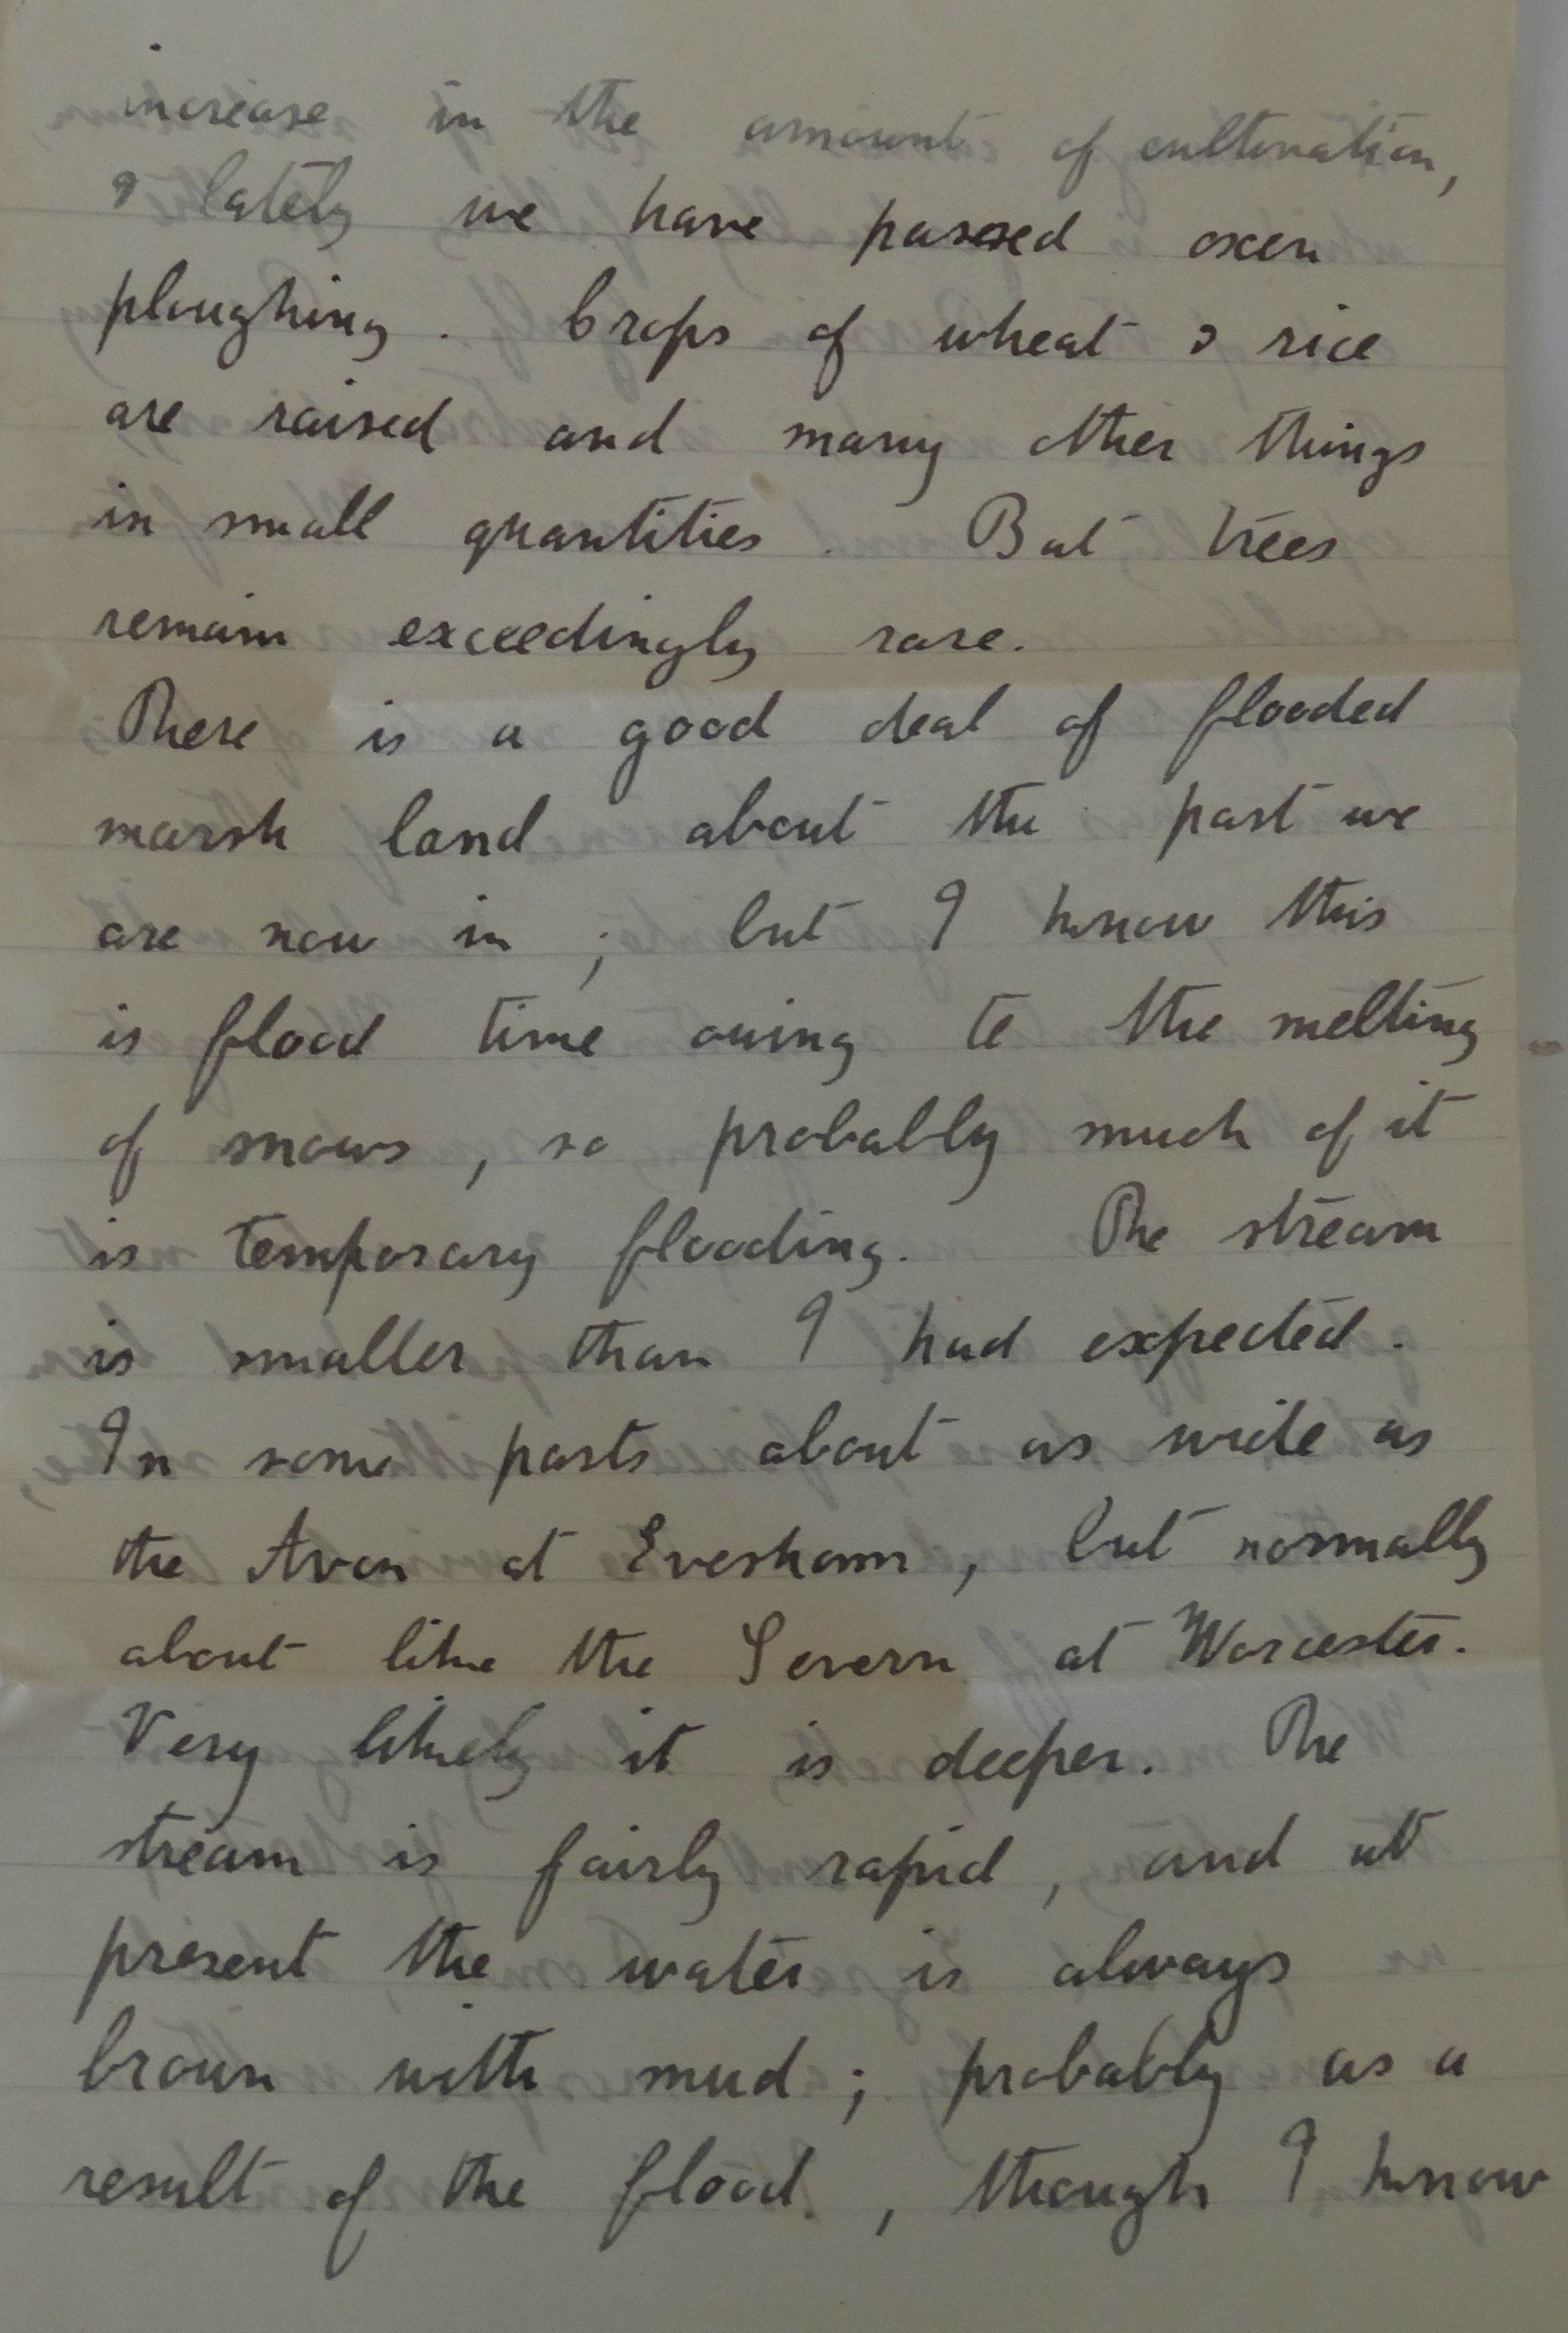 increase in the amount of cultivation,
& lately we have passed oxen
ploughing. Crops of wheat & rice
are raised and many other things
in small quantities. But trees
remain exceedingly rare.
There is a good deal of flooded
marsh land about the part we
are now in; but I know this
is flood time owing to the melting
of snows, so probably much of it
is temporary flooding. The stream
is smaller than I had expected.
In some parts about as wide as
the Avon at Evesham, but normally
about like the Severn at Worcester.
Very likely it is deeper. The
stream is fairly rapid, and at
present the water is always
brown with mud; probably as a
result of the flood, though I know